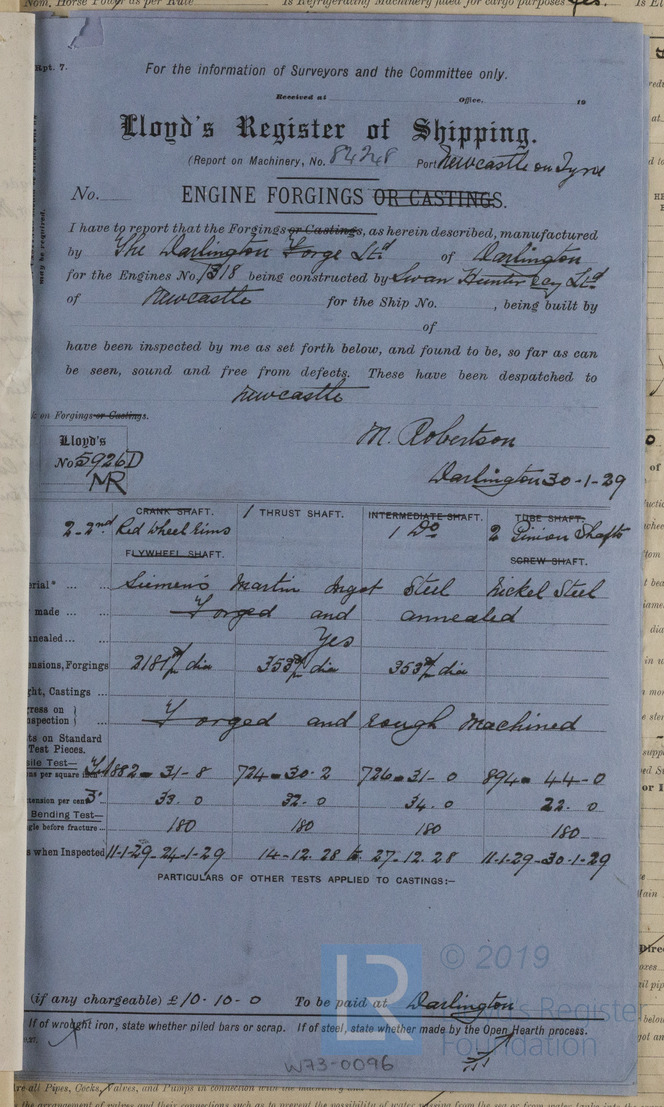 Nom. Horse Power as per Rule Is Refrigerating Machinery fitted for cargo purposes Yes.
Rpt. 7.
For the information of Surveyors and the Committee only.
Received at Office, 19
Lloyd's Register of Shipping.
(Report on Machinery, No. 84248 Port Newcastle on Tyne
No. ENGINE FORGINGS OR CASTINGS.
may be required.
I have to report that the Forgings or Castings, as herein described, manufactured
by The Darlington Forge Ltd of Darlington
for the Engines No. 1318 being constructed by Swan Hunter &c Ltd
of Newcastle for the Ship No. , being built by
of
have been inspected by me as set forth below, and found to be, so far as can
be seen, sound and free from defects. These have been despatched to
Newcastle
k on Forgings or Castings.
Lloyd's
No 5926D
MR
M. Robertson
Darlington 30-1-29
CRANK SHAFT. 1 THRUST SHAFT. INTERMEDIATE SHAFT. TUBE SHAFT.
2-2nd Red Wheel Rims 1 Do 2 Pinion Shafts
FLYWHEEL SHAFT. SCREW SHAFT.
erial* ... ... Siemens Martin Ingot Steel Nickel Steel
made ... Forged and annealed
nnealed ... ... Yes
ensions, Forgings dia dia dia
ght, Castings ...
gress on
nspection Forged and rough machined
ts on Standard
Test Pieces.
sile Test—
ns per square inch 882 - 31-8 724 - 30.2 726 - 31-0 894 - 44-0
tension per cent 3" 33.0 32.0 34.0 22.0
Bending Test—
gle before fracture ... 180 180 180 180
s when Inspected 11-1-29-24-1-29 14-12.28 to 27-12.28 11-1-29-30-1-29
PARTICULARS OF OTHER TESTS APPLIED TO CASTINGS:—
(if any chargeable) £10-10-0 To be paid at Darlington
If of wrought iron, state whether piled bars or scrap. If of steel, state whether made by the Open Hearth process.
LR
© 2019
Lloyd's Register
Foundation
W73-0096
are all Pipes, Cocks, Valves, and Pumps in connection with the